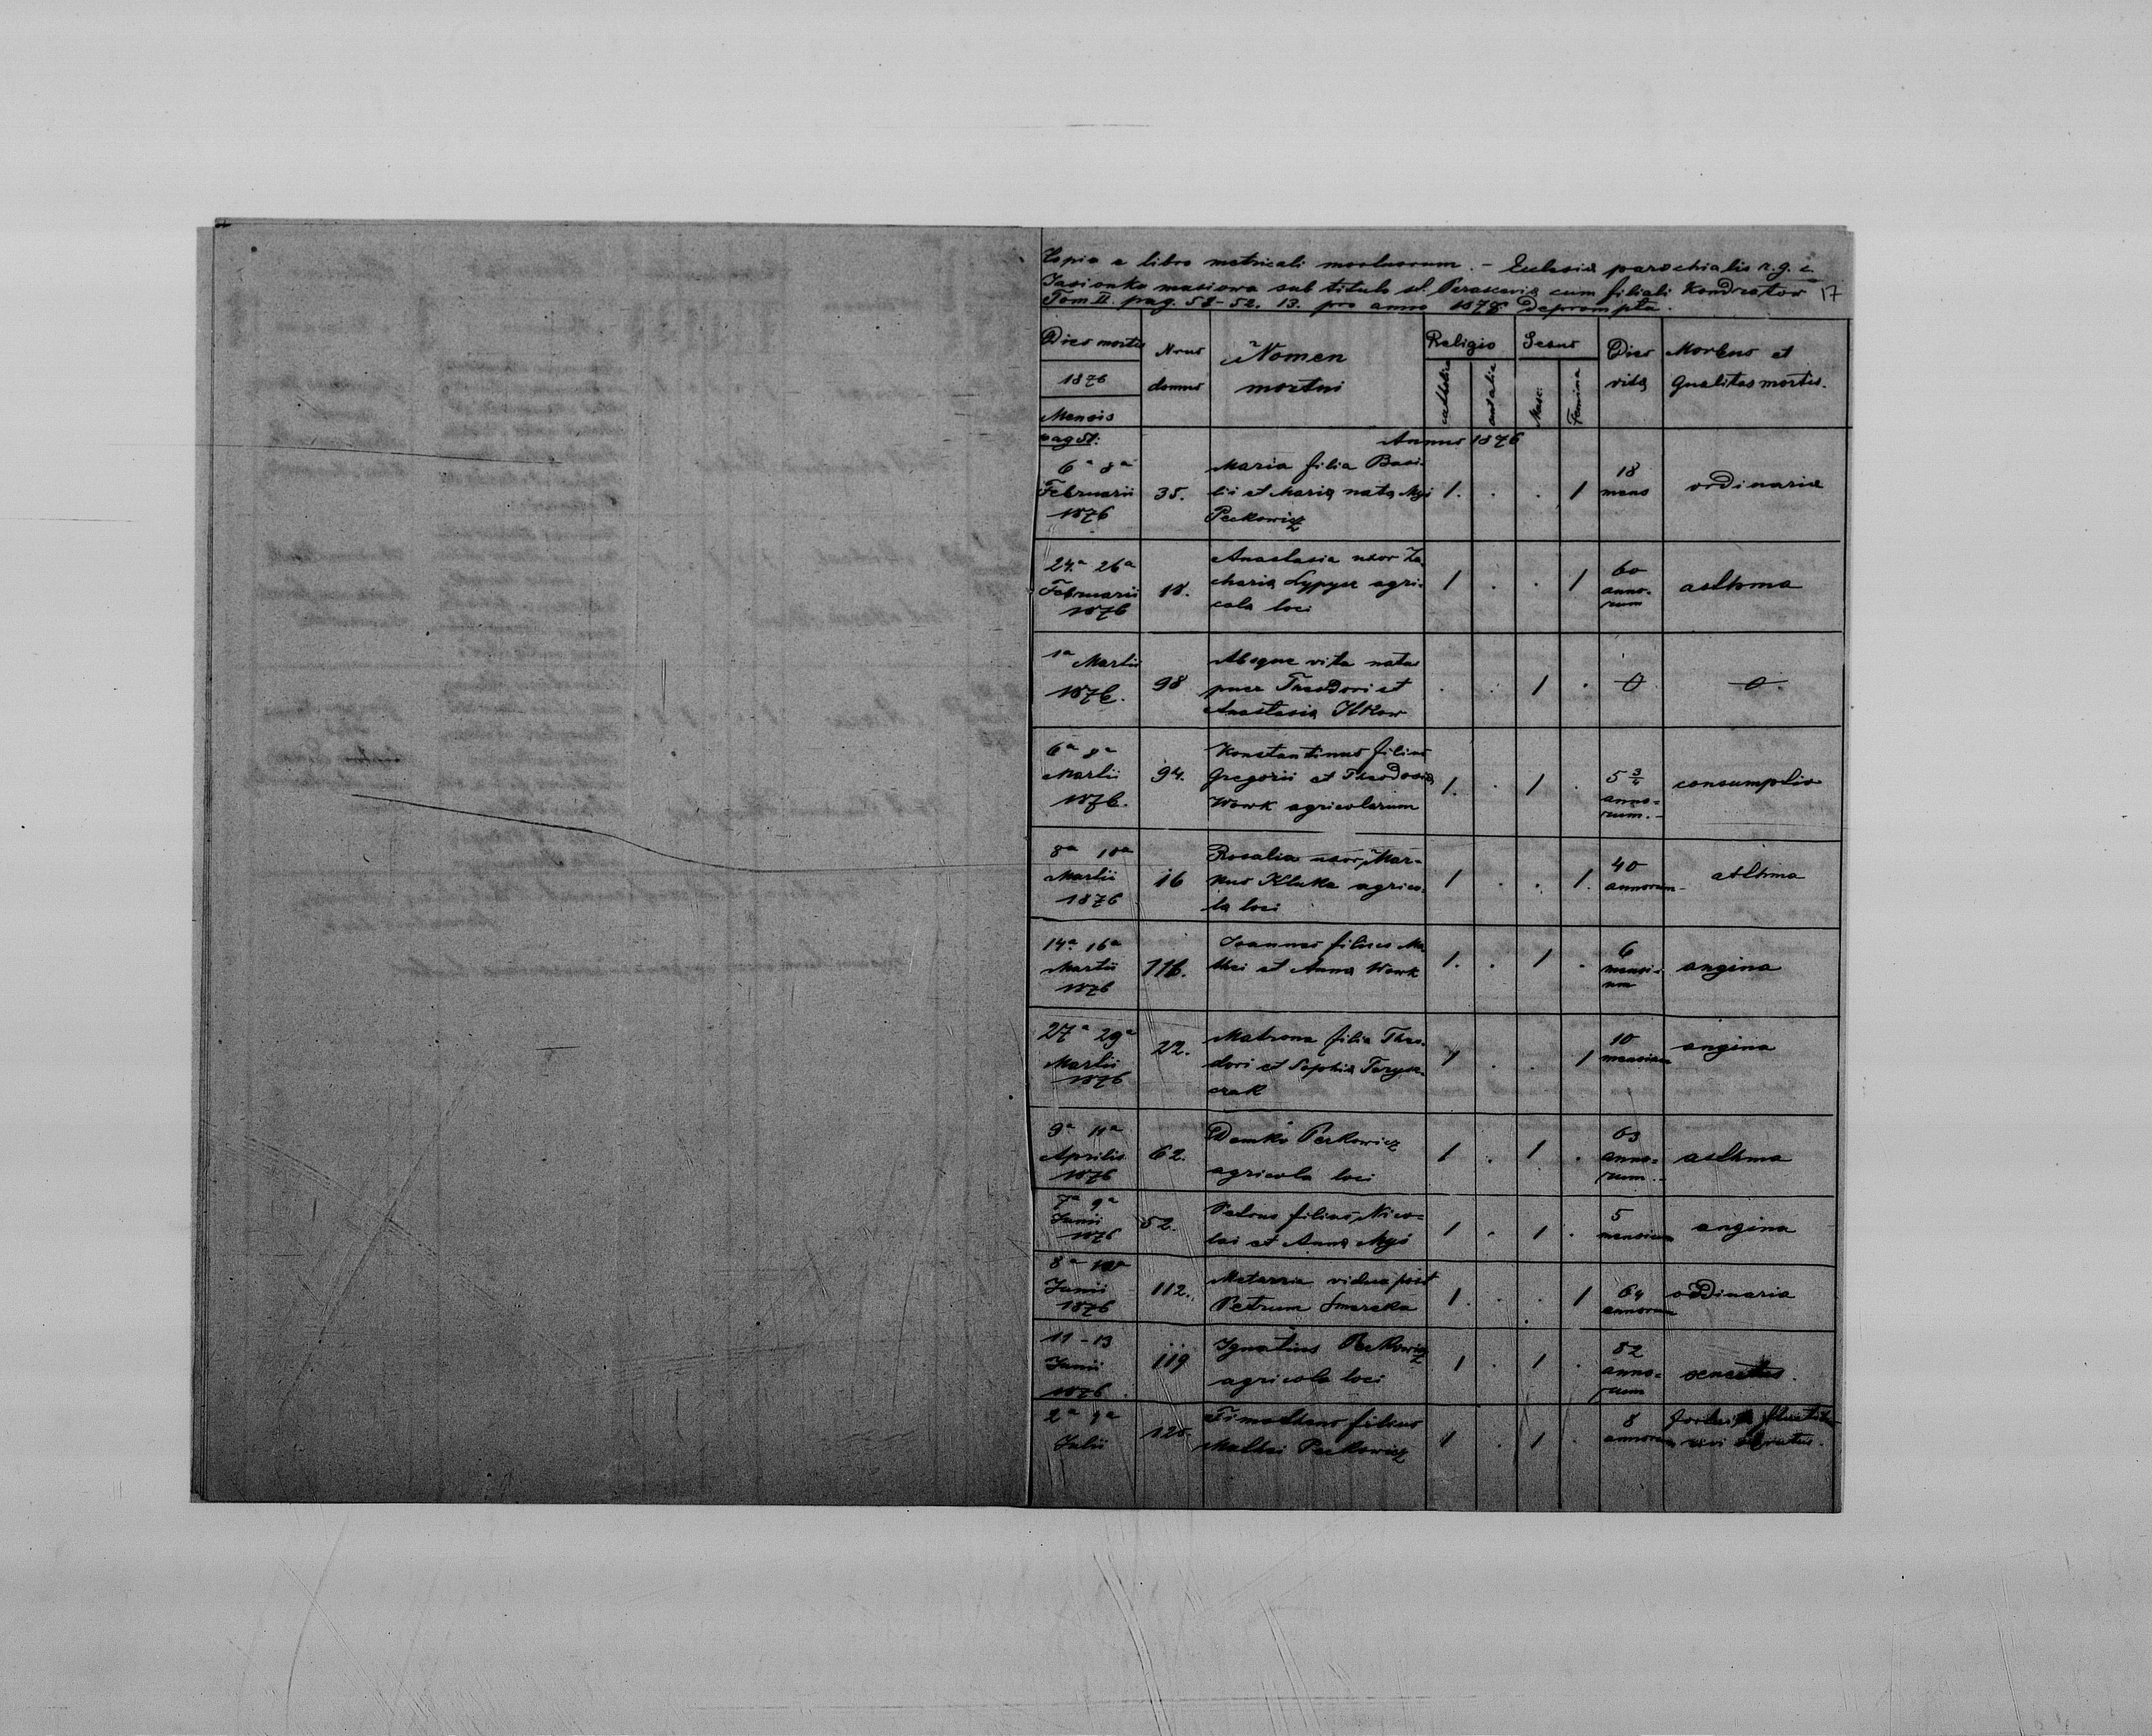 Copia e libro metricali mortuorum. – Ecclesia parochialis r. g. c.
Jasionka masiowa sub titulo st. Parascevia cum filiali Kondratow 17
Tom II. pag. 51-52. 13. pro anno 1876 deprompta.
Dies mortis
1876
Mensis
Nrus
domus
Nomen
mortui
Religio
catholica
aut alia
Sexus
Masc:
Femina
Dies
vita
Morbus et
qualitas mortis.
pag 51: Annus 1876
6a 8a
Februarii
1876
35.
Maria filia Basi-
lii et Maria nata Myś
Peckowicz
1. . . 1
18
mens
ordinaria
24a 26a
Februarii
1876
18.
Anastasia uxor Za
charia Lypyur agri-
cola loci
1 . . 1
60
anno-
rum
asthma
1a Martii
1876.
98
Absque vita natus
puer Theodori et
Anastasia Ilkow
. . 1 .
6a 8a
Martii
1876.
94.
Konstantinus filius
Gregorii et Theodosia
Wowk agricolarum
1. . 1 .
5 3/4
anno-
rum.-
consumptio
8a 10a
Martii
1876
16
Rosalia uxor Mar-
kus Kluka agrico-
la loci
1 . . 1.
40
annorum-
asthma
14a 16a
Martii
1876
116.
Joannes filius Ma
thei et Anna Wowk
1. . 1 .
6
mensi-
um
angina
27a 29a
Martii
1876
22.
Matrona filia Theo-
dori et Sophia
crak
1 . . 1
10
mensium
angina
9a 11a
Aprilis
1876
62.
Demko Perkowicz
agricola loci
1 . 1 .
63
anno-
rum.-
asthma
7a 9a
Junii
1876
52.
Petrus filius Nico-
lai et Anna Myś
1 . 1 .
5
mensium
angina
8a 10a
Junii
1876
112.
vidua post
Petrum Smereka
1. . . 1
64
annorum
ordinaria
11 - 13
Junii
1876.
119
Ignatius Peckowicz
agricola loci
1 . 1 .
82
anno-
rum
senectus.
2a
Julii
120.
Timotheus filius
Mathei Peckowicz
1 . 1 .
8
annorum